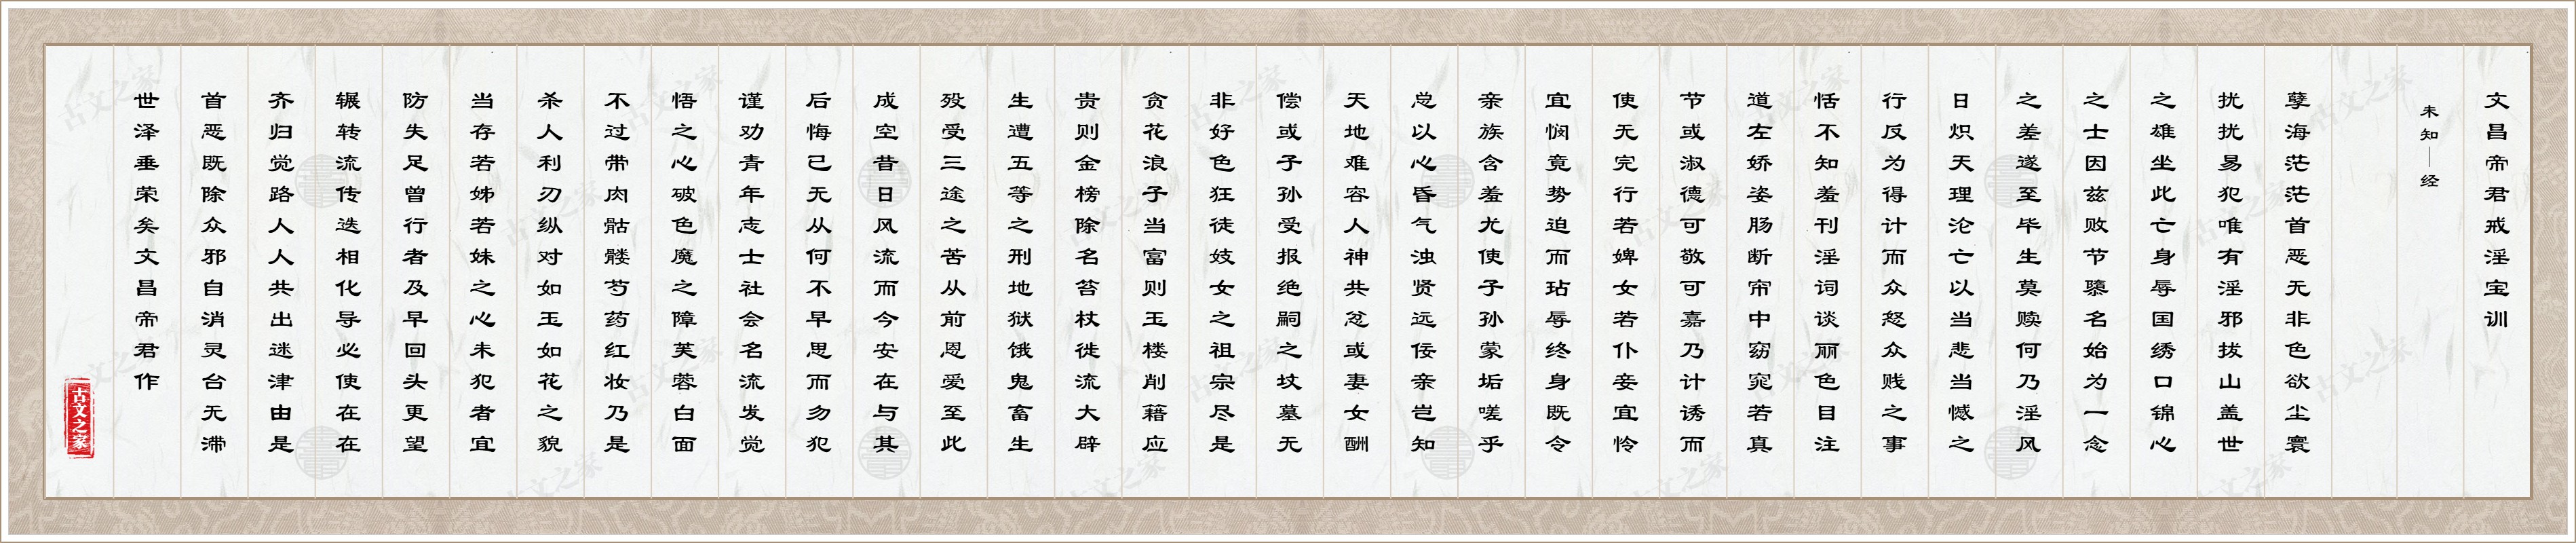 文昌帝君戒淫宝训
未知—经
孽海茫茫首恶无非色欲尘寰
扰扰易犯唯有淫邪拔山盖世
之雄坐此亡身辱国绣口锦心
之士因兹败节隳名始为一念
之差遂至毕生莫赎何乃淫风
日炽天理沦亡以当悲当憾之
行反为得计而众怒众贱之事
恬不知羞刊淫词谈丽色目注
道左娇姿肠断帘中窈窕若真
节或淑德可敬可嘉乃计诱而
使无完行若婢女若仆妾宜怜
宜悯竟势迫而玷辱终身既令
亲族含羞尤使子孙蒙垢嗟乎
总以心昏气浊贤远佞亲岂知
天地难容人神共忿或妻女酬
偿或子孙受报绝嗣之坟墓无
非好色狂徒妓女之祖宗尽是
贪花浪子当富则玉楼削藉应
贵则金榜除名笞杖徙流大辟
生遭五等之刑地狱饿鬼畜生
殁受三途之苦从前恩爱至此
成空昔日风流而今安在与其
后悔已无从何不早思而勿犯
谨劝青年志士社会名流发觉
悟之心破色魔之障芙蓉白面
不过带肉骷髅芍药红妆乃是
杀人利刃纵对如玉如花之貌
当存若姊若妹之心未犯者宜
防失足曾行者及早回头更望
辗转流传迭相化导必使在在
齐归觉路人人共出迷津由是
首恶既除众邪自消灵台无滞
世泽垂荣矣文昌帝君作
古文之家